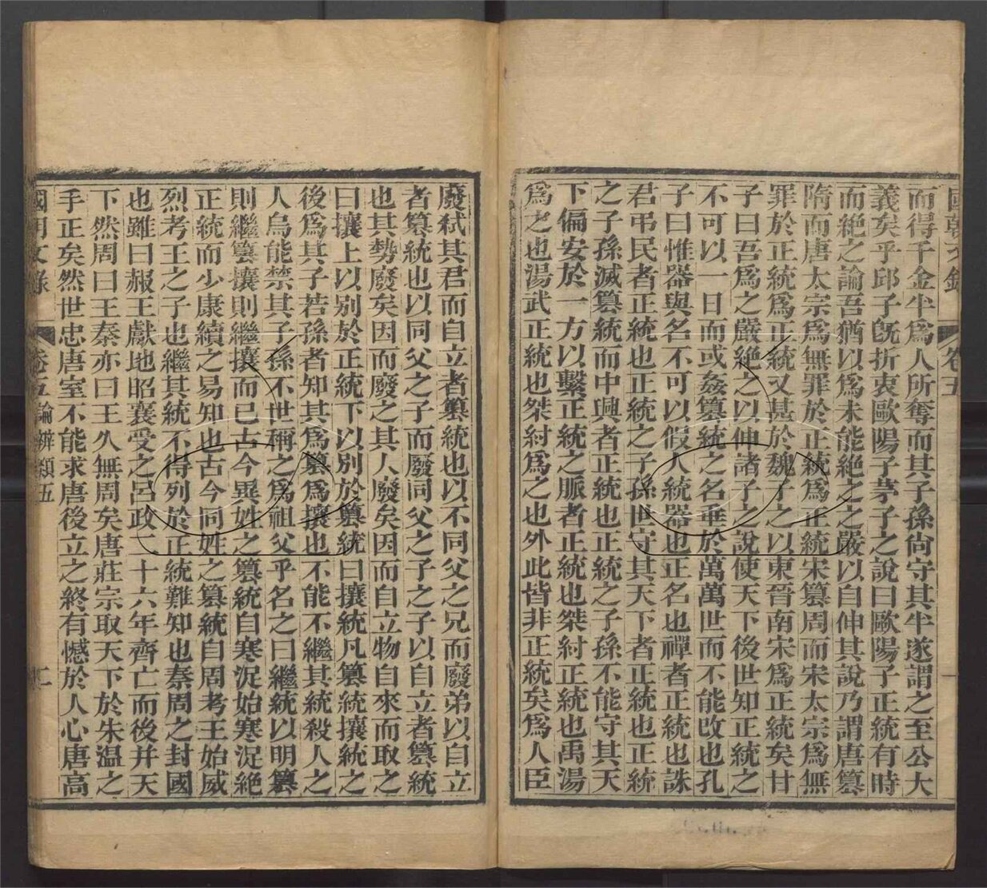 國朝文錄 卷五
而得千金半爲人所奪而其子孫尚守其半遂謂之至公大
義矣乎邱子旣折衷歐陽子茅子之說曰歐陽子正統有時
而絕之論吾猶以爲未能絕之之嚴以自伸其說乃謂唐篡
隋而唐太宗爲無罪於正統爲正統宋篡周而宋太宗爲無
罪於正統爲正統又甚於魏子之以東晉南宋爲正統矣甘
子曰吾爲之嚴絕之以伸諸子之說使天下後世知正統之
不可以一日而或姦篡統之名垂於萬萬世而不能改也孔
子曰惟器與名不可以假人統器也正名也禪者正統也誅
君弔民者正統也正統之子孫世守其天下者正統也正統
之子孫滅篡統而中興者正統也正統之子孫不能守其天
下偏安於一方以繫正統之脈者正統也桀紂正統也禹湯
爲之也湯武正統也桀紂爲之也外此皆非正統矣爲人臣
廢弒其君而自立者篡統也以不同父之兄而廢弟以自立
者篡統也以同父之子而廢同父之子之子以自立者篡統
也其勢廢矣因而廢之其人廢矣因而自立物自來而取之
曰攘上以别於正統下以別於篡統曰攘統凡篡統攘統之
後爲其子若孫者知其爲篡爲攘也不能不繼其統殺人之
人烏能禁其子孫不世稱之爲祖父乎名之曰繼統以明篡
則繼篡攘則繼攘而已古今異姓之篡統自寒浞始寒浞絕
正統而少康續之易知也古今同姓之篡統自周考王始威
烈考王之子也繼其統不得列於正統難知也秦周之封國
也雖曰赧王獻地昭襄受之呂政二十六年齊亡而後并天
下然周曰王秦亦曰王久無周矣唐莊宗取天下於朱温之
手正矣然世忠唐室不能求唐後立之終有憾於人心唐高
國朝文錄 卷五 論辨類五